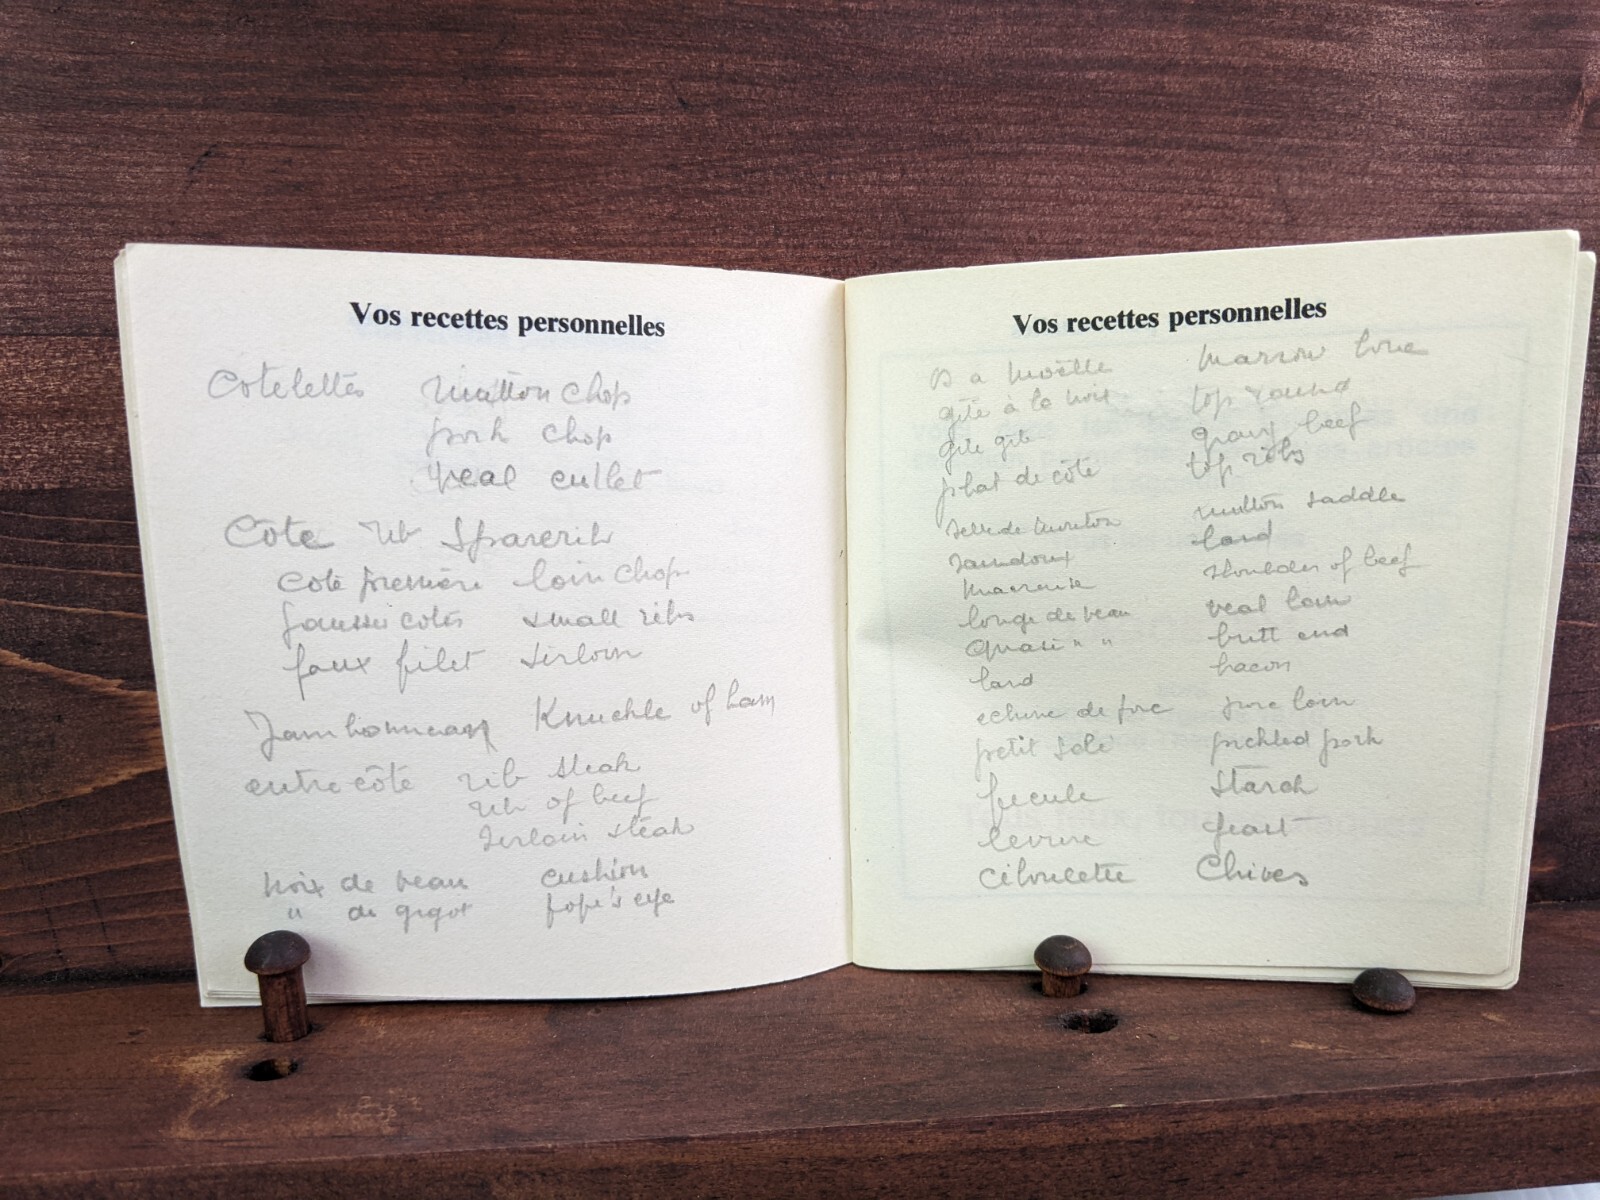 Vos recettes personnelles
Cotelettes mutton chop
pork chop
veal cutlet
Côte rib Sparerib
Cote première loin chop
fausses cotes small ribs
faux filet sirloin
Jambonneau Knuckle of ham
entrecôte rib steak
rib of beef
Sirloin steak
Noix de veau cushion
" de gigot pope's eye
Vos recettes personnelles
Os a moëlle Marrow bone
gite à la noix top round
gite gite gravy beef
plat de côte top ribs
Selle de mouton mutton saddle
Saindoux lard
Macreuse shoulder of beef
longe de veau veal loin
Quasi " " butt end
lard bacon
echine de porc porc loin
petit salé pickled pork
fecule Starch
levure yeast
Ciboulette Chives